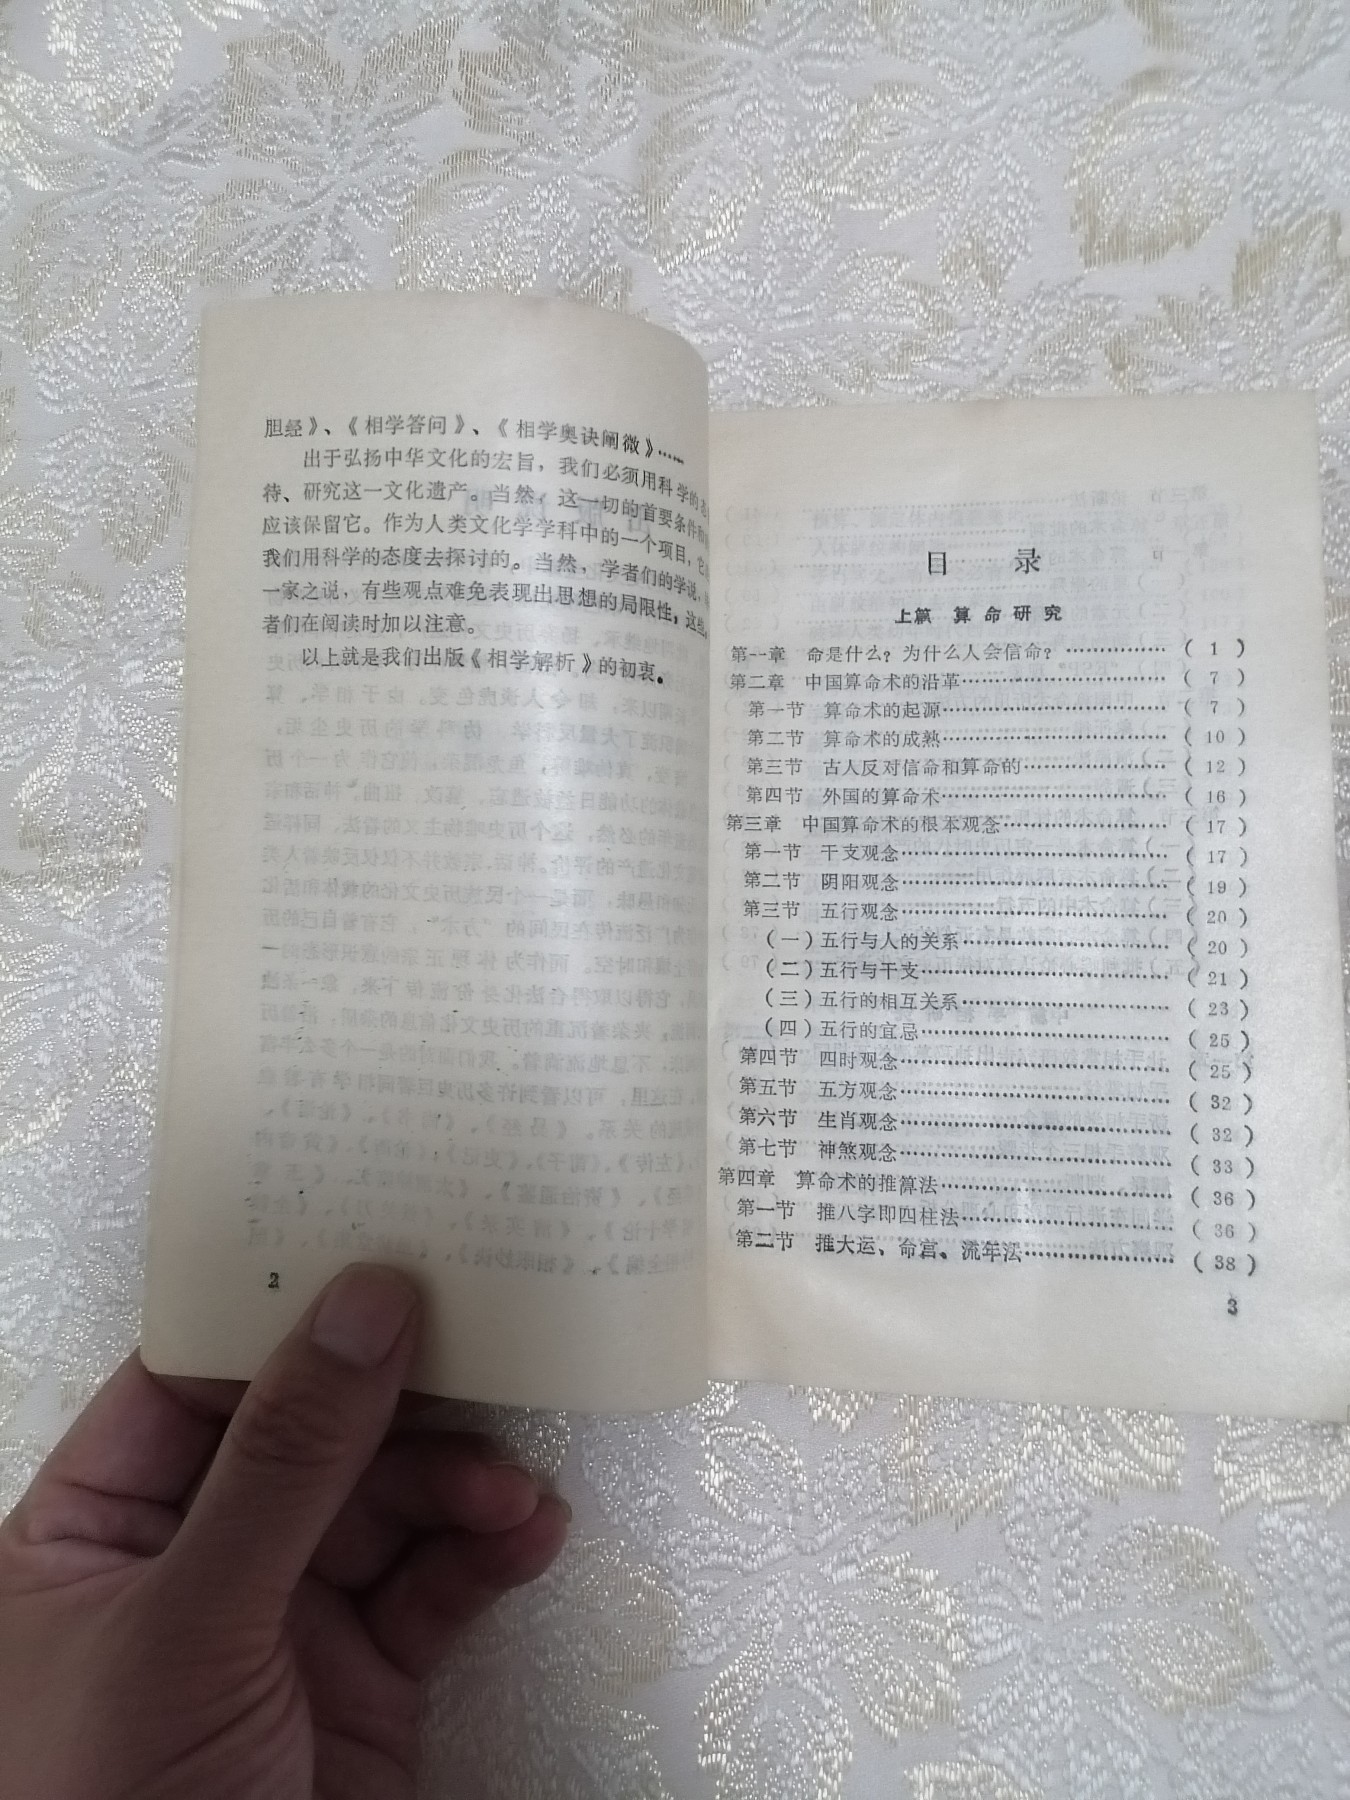 胆经》、《相学答问》、《相学奥诀阐微》……
出于弘扬中华文化的宏旨，我们必须用科学的态
待、研究这一文化遗产。当然，这一切的首要条件
应该保留它。作为人类文化学学科中的一个项目，它
我们用科学的态度去探讨的。当然，学者们的学说，
一家之说，有些观点难免表现出思想的局限性，这些
者们在阅读时加以注意。
以上就是我们出版《相学解析》的初衷。
2
目 录
上篇 算命研究
第一章 命是什么？为什么人会信命？……………（1）
第二章 中国算命术的沿革……………………（7）
第一节 算命术的起源……………………（7）
第二节 算命术的成熟……………………（10）
第三节 古人反对信命和算命的……………（12）
第四节 外国的算命术……………………（16）
第三章 中国算命术的根本观念………………（17）
第一节 干支观念…………………………（17）
第二节 阴阳观念…………………………（19）
第三节 五行观念…………………………（20）
（一）五行与人的关系……………………（20）
（二）五行与干支…………………………（21）
（三）五行的相互关系……………………（23）
（四）五行的宜忌…………………………（25）
第四节 四时观念…………………………（25）
第五节 五方观念…………………………（32）
第六节 生肖观念…………………………（32）
第七节 神煞观念…………………………（33）
第四章 算命术的推算法………………………（36）
第一节 推八字即四柱法…………………（36）
第二节 推大运、命宫、流年法……………（38）
3